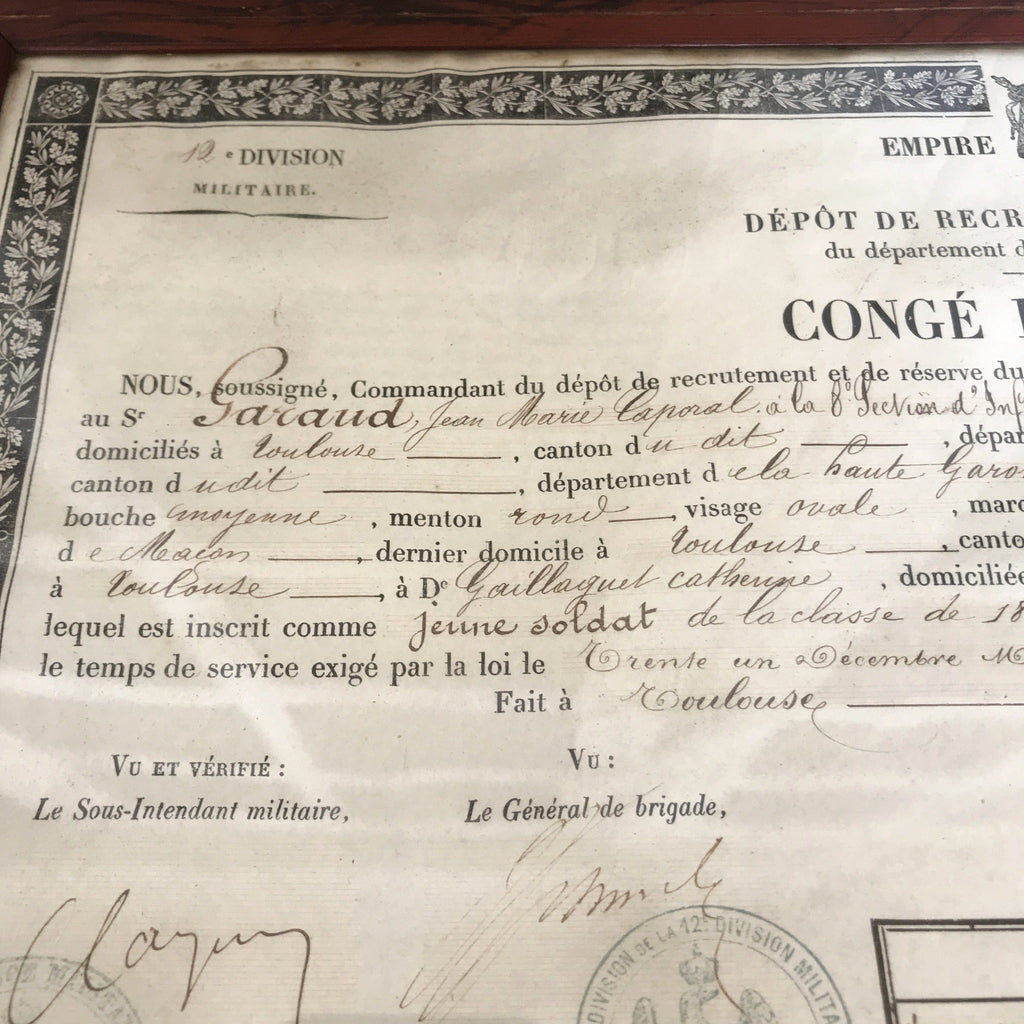 12 e DIVISION
MILITAIRE.
EMPIRE
DÉPÔT DE RECR
du département d
CONGÉ
NOUS, soussigné, Commandant du dépôt de recrutement et de réserve du
au Sr Garaud, Jean Marie Caporal à la 8e Section d'Inf
domiciliés à Toulouse, canton du dit, dépar
canton dudit, département dela haute Garo
bouche moyenne, menton rond, visage ovale, mar
de Maçon, dernier domicile à Toulouse, canto
à Toulouse, à De Gaillaguet catherine, domiciliée
lequel est inscrit comme jeune soldat de la classe de 18
le temps de service exigé par la loi le Trente un Décembre M
Fait à Toulouse
VU ET VÉRIFIÉ :
VU :
Le Sous-Intendant militaire,
Le Général de brigade,
DIVISION DE LA 12e DIVISION MILITA